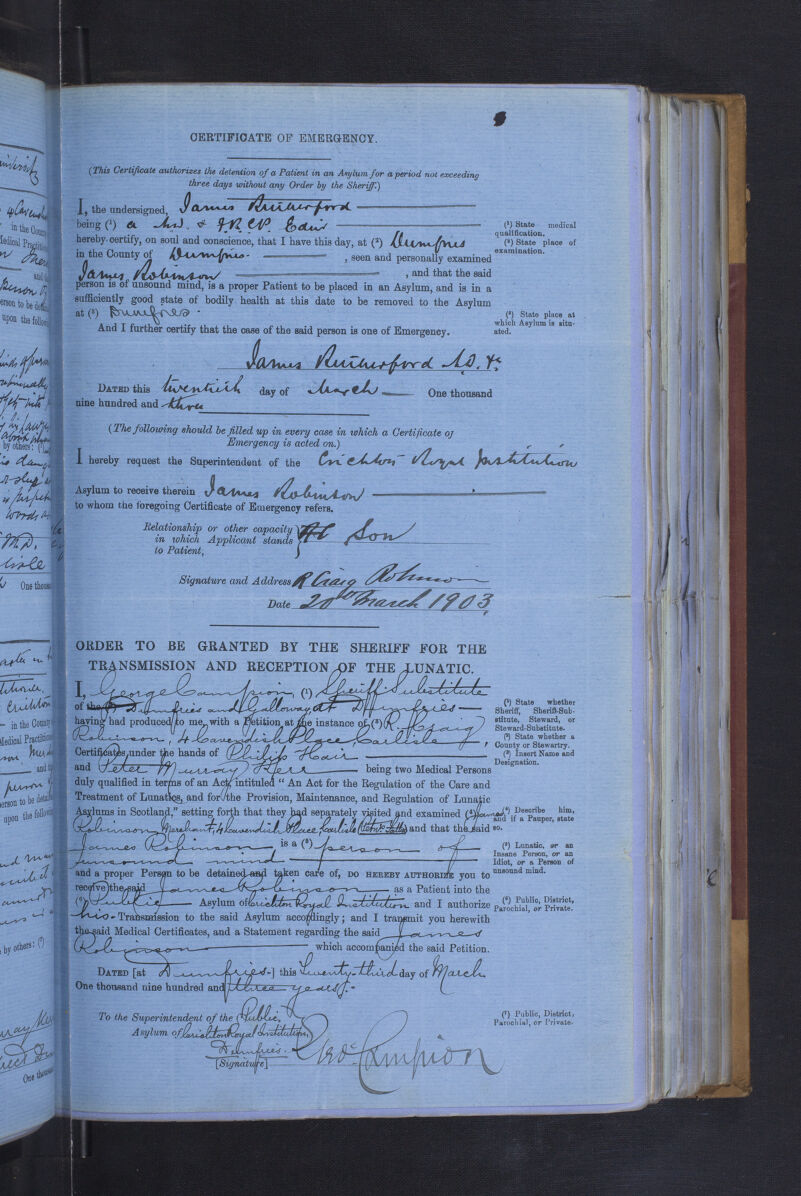 CERTIFICATE OF EMERGENCY.
(This Certificate authorizes the detention of a Patient in an Asylum for a period not exceeding
three days without any Order by the Sheriff.)
I, the undersigned, James Rutherford
being (¹) a M.D. & F.R.C.P. Edin
hereby certify, on soul and conscience, that I have this day, at (²) Dumfries
in the County of Dumfries , seen and personally examined
James Robinson , and that the said
person is of unsound mind, is a proper Patient to be placed in an Asylum, and is in a
sufficiently good state of bodily health at this date to be removed to the Asylum
at (³) Dumfries.
And I further certify that the case of the said person is one of Emergency.
(¹) State medical
qualification.
(²) State place of
examination.
(³) State place at
which Asylum is situ-
ated.
James Rutherford M.D. &c.
DATED this twentieth day of March One thousand
nine hundred and three
(The following should be filled up in every case in which a Certificate of
Emergency is acted on.)
I hereby request the Superintendent of the Crichton Royal Institution
Asylum to receive therein James Robinson
to whom the foregoing Certificate of Emergency refers.
Relationship or other capacity
in which Applicant stands Son
to Patient,
Signature and Address R Craig Robinson
Date 20th March 1903.
ORDER TO BE GRANTED BY THE SHERIFF FOR THE
TRANSMISSION AND RECEPTION OF THE LUNATIC.
I, George Campion, (¹) Sheriff Substitute
of the Dumfries and Galloway at Dumfries
having had produced to me, with a Petition at the instance of (³) R. Craig
Robinson, 4 Cavendish Place Carlisle,
Certificates under the hands of Philip Hair
and Peter Murray Kerr being two Medical Persons
duly qualified in terms of an Act, intituled " An Act for the Regulation of the Care and
Treatment of Lunatics, and for the Provision, Maintenance, and Regulation of Lunatic
Asylums in Scotland," setting forth that they had separately visited and examined (⁴) James
Robinson, Merchant, 4 Cavendish Place, Carlisle and that the said
James Robinson is a (⁵) person of
unsound mind
and a proper Person to be detained and taken care of, DO HEREBY AUTHORIZE you to
receive the said James Robinson as a Patient into the
(⁶) Public Asylum of Crichton Royal Institution and I authorize
his Transmission to the said Asylum accordingly; and I transmit you herewith
the said Medical Certificates, and a Statement regarding the said James
Robinson which accompanied the said Petition.
(¹) State whether
Sheriff, Sheriff-Sub-
stitute, Steward, or
Steward-Substitute.
(²) State whether a
County or Stewartry.
(³) Insert Name and
Designation.
(⁴) Describe him,
and if a Pauper, state
so.
(⁵) Lunatic, or an
Insane Person, or an
Idiot, or a Person of
unsound mind.
(⁶) Public, District,
Parochial, or Private.
DATED [at Dumfries] this Twenty-third day of March
One thousand nine hundred and three years.
To the Superintendent of the (⁷) Public
Asylum of Crichton Royal Institution,
Dumfries.
[Signature] Geo. Campion
(⁷) Public, District,
Parochial, or Private.